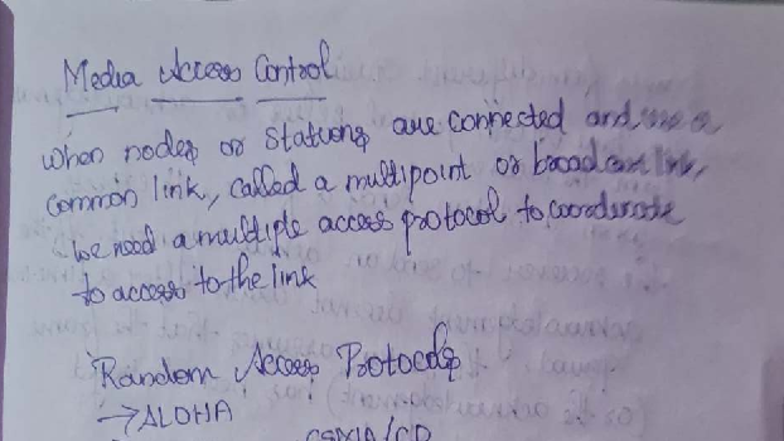 Media Access Control
when nodes or stations are connected and use a
common link, called a multipoint or broadcast link,
we need a multiple access protocol to coordinate
to access to the link
Random Access Protocols
→ ALOHA
CSMA/CD